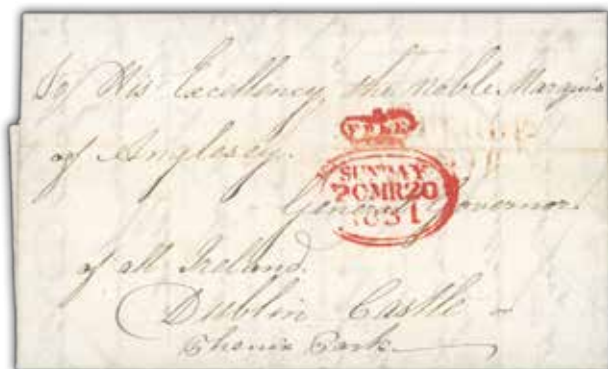 To His Excellency the Noble Marquis
of Anglesey.
FREE
SUNDAY
20MR20
1831
General Governor
of all Ireland.
Dublin Castle or
Phenix Park